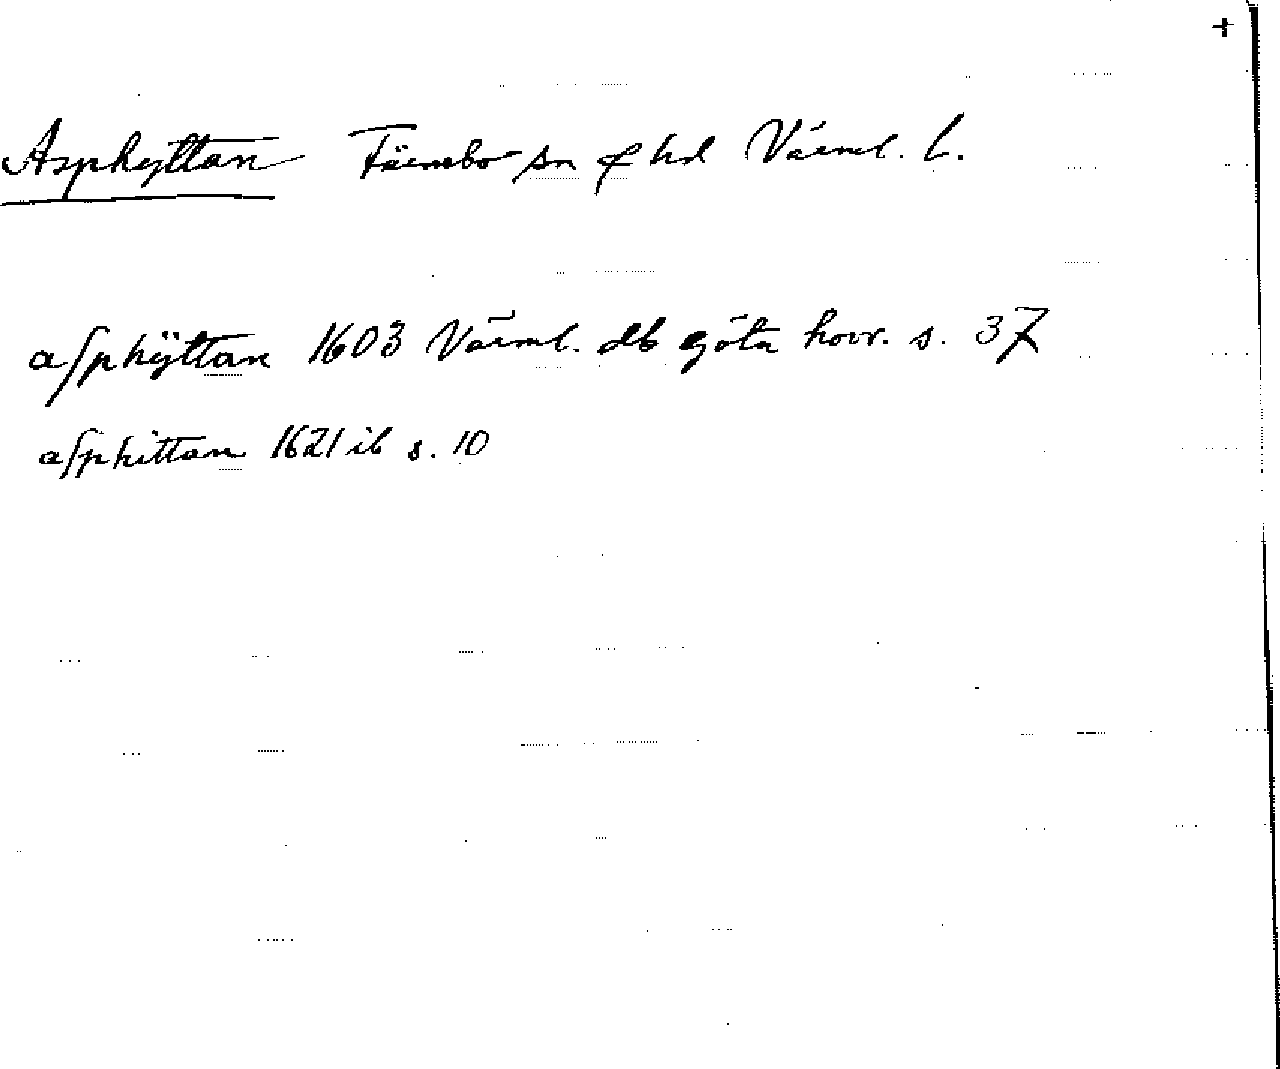 +
Asphyttan Färnebo sn f hd Värml. L.
asphÿttan 1603 Värml. db Göta hovr. s. 37
asphittan 1621 ib s. 10